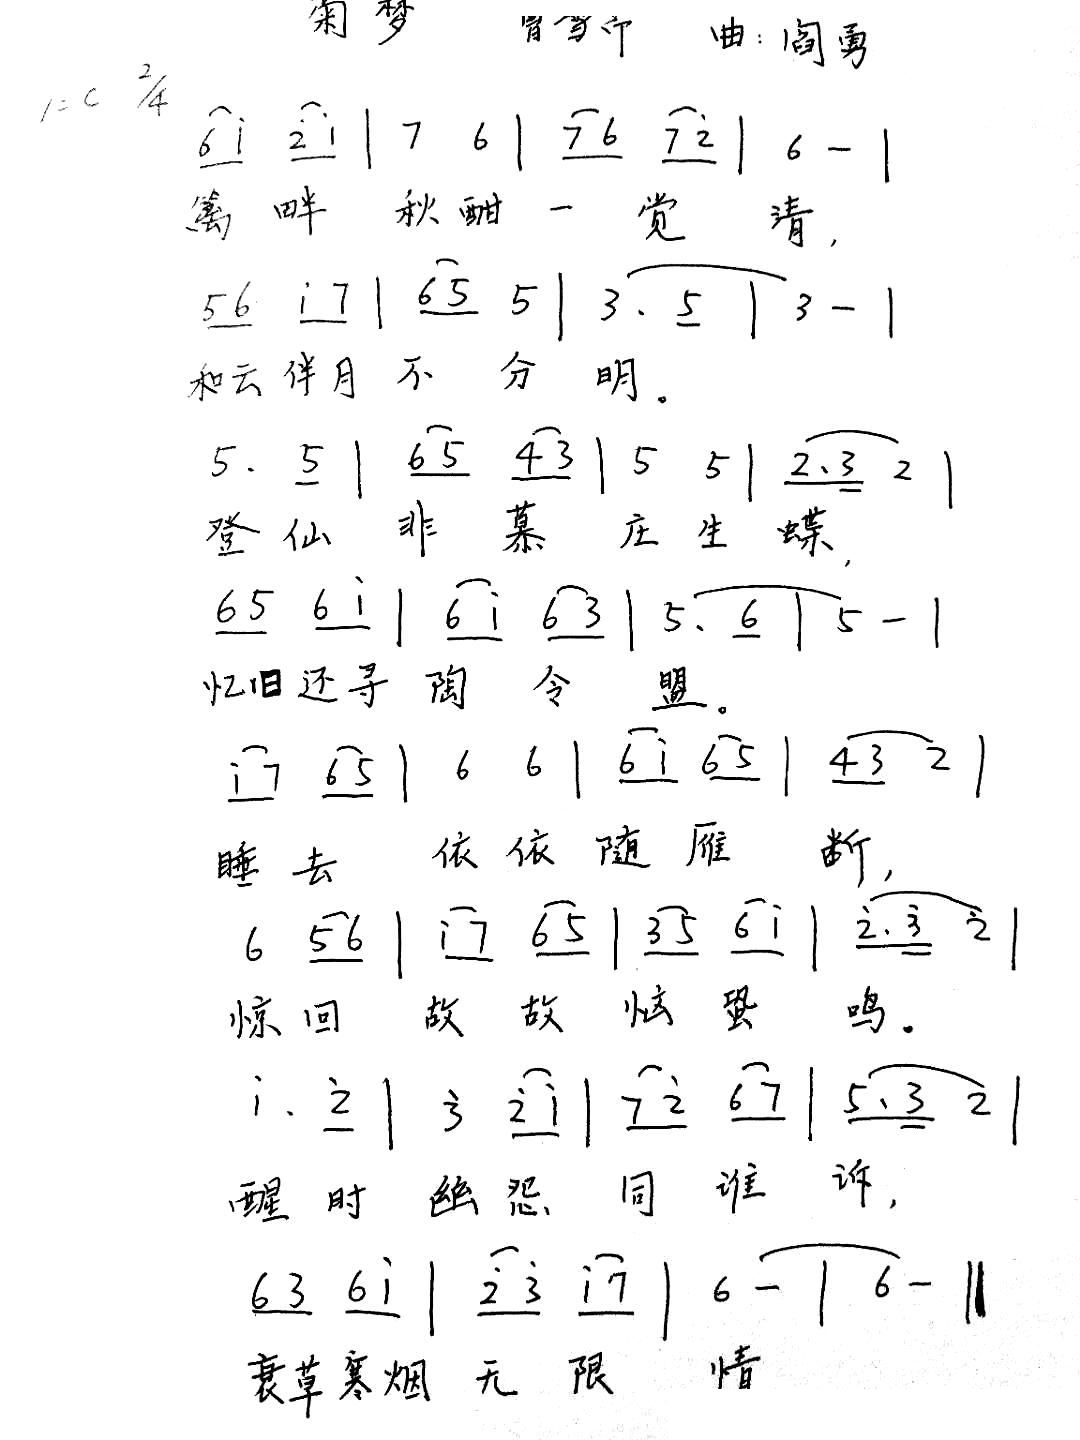 菊梦 曹雪芹 曲:阎勇
1=C 2/4
6i 2̇i | 7 6 | 76 72̇ | 6 – |
篱畔秋酣一觉清,
56 i7 | 65 5 | 3. 5 | 3 – |
和云伴月不分明。
5. 5 | 65 43 | 5 5 | 2.3 2 |
登仙非慕庄生蝶,
65 6i | 6i 63 | 5. 6 | 5 – |
忆旧还寻陶令盟。
i7 65 | 6 6 | 6i 65 | 43 2 |
睡去依依随雁断,
6 56 | i7 65 | 35 6i | 2̇.3̇ 2̇ |
惊回故故恼蛩鸣。
i. 2̇ | 3̇ 2̇i | 72̇ 67 | 5.3 2 |
醒时幽怨同谁诉,
63 6i | 2̇3̇ i7 | 6 – | 6 – ‖
衰草寒烟无限情